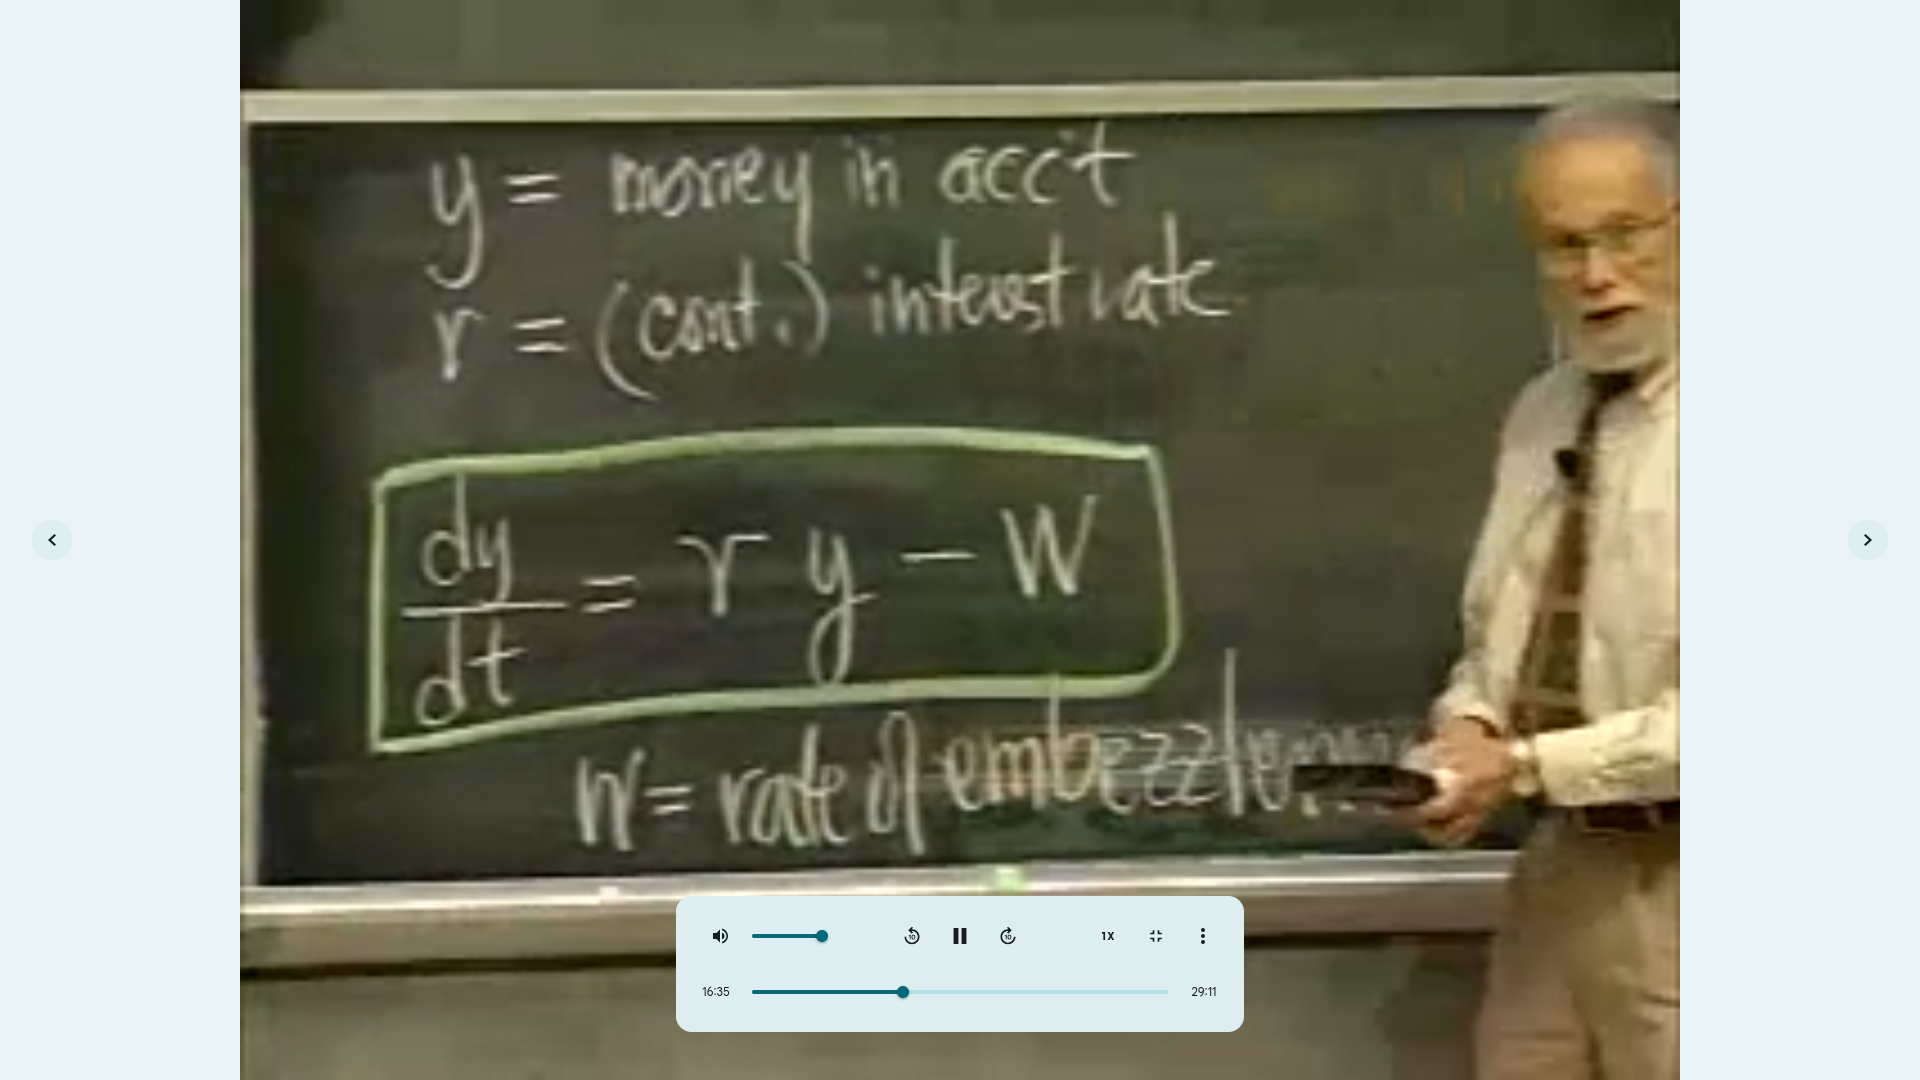 y = money in acc't
r = (cont.) interest rate
dy/dt = r y − W
W = rate of
1X
16:35
29:11